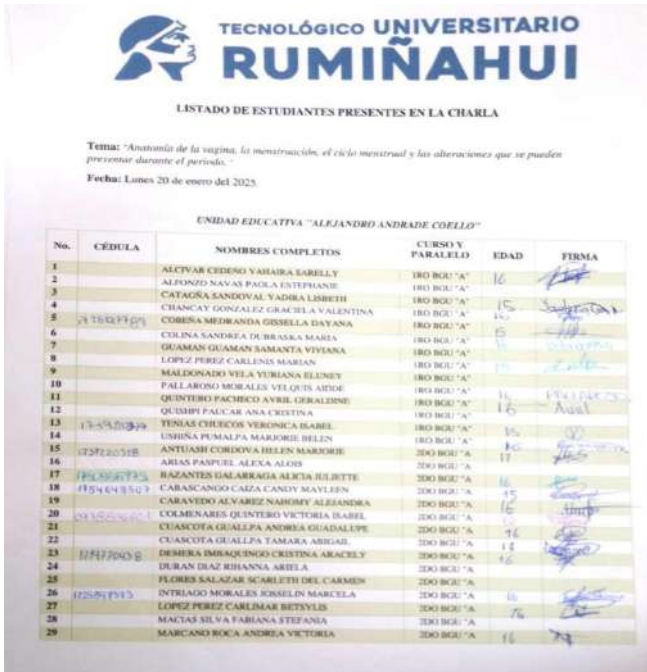 TECNOLÓGICO UNIVERSITARIO
RUMIÑAHUI
LISTADO DE ESTUDIANTES PRESENTES EN LA CHARLA
Tema: "Anatomía de la vagina, la menstruación, el ciclo menstrual y las alteraciones que se pueden
presentar durante el periodo."
Fecha: Lunes 20 de enero del 2025.
UNIDAD EDUCATIVA "ALEJANDRO ANDRADE COELLO"
No. CÉDULA NOMBRES COMPLETOS CURSO Y PARALELO EDAD FIRMA
1 ALCIVAR CEDEÑO YAHAIRA SARELLY 1RO BGU "A" 16
2 ALFONZO NAVAS PAOLA ESTEPHANIE 1RO BGU "A"
3 CATAGÑA SANDOVAL YADIRA LISBETH 1RO BGU "A" 15
4 CHANCAY GONZALEZ GRACIELA VALENTINA 1RO BGU "A"
5 COREÑA MEDRANDA GISSELLA DAYANA 1RO BGU "A" 15
6 COLINA SANDREA DUBRASKA MARIA 1RO BGU "A"
7 GUAMAN GUAMAN SAMANTA VIVIANA 1RO BGU "A"
8 LOPEZ PEREZ CARLENIS MARIAN 1RO BGU "A"
9 MALDONADO VELA YURIANA ELUNEY 1RO BGU "A"
10 PALLAROSO MORALES VELQUIS AIDDE 1RO BGU "A"
11 QUINTERO PACHECO AVRIL GERALDINE 1RO BGU "A" 16
12 QUISHPI PAUCAR ANA CRISTINA 1RO BGU "A"
13 TENIAS CHUECOS VERONICA ISABEL 1RO BGU "A"
14 USHIÑA PUMALPA MARJORIE BELEN 1RO BGU "A"
15 ANTUASH CORDOVA HELEN MARJORIE 2DO BGU "A
16 ARIAS PASPUEL ALEXA ALOIS 2DO BGU "A
17 BAZANTES GALARRAGA ALICIA JULIETTE 2DO BGU "A 16
18 1754643507 CABASCANGO CAIZA CANDY MAYLEEN 2DO BGU "A 15
19 CARAVEDO ALVAREZ NAHOMY ALEJANDRA 2DO BGU "A 16
20 COLMENARES QUINTERO VICTORIA ISABEL 2DO BGU "A
21 CUASCOTA GUALLPA ANDREA GUADALUPE 2DO BGU "A 16
22 CUASCOTA GUALLPA TAMARA ABIGAIL 2DO BGU "A
23 DEMERA IMBAQUINGO CRISTINA ARACELY 2DO BGU "A 16
24 DURAN DIAZ RIHANNA ARIELA 2DO BGU "A
25 FLORES SALAZAR SCARLETH DEL CARMEN 2DO BGU "A
26 INTRIAGO MORALES JOSSELIN MARCELA 2DO BGU "A 16
27 LOPEZ PEREZ CARLIMAR BETSYLIS 2DO BGU "A 16
28 MACIAS SILVA FABIANA STEFANIA 2DO BGU "A
29 MARCANO ROCA ANDREA VICTORIA 2DO BGU "A 16